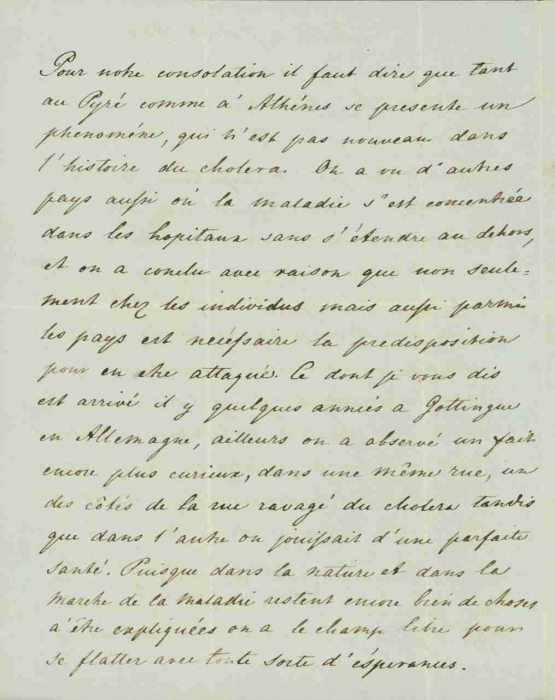 Pour notre consolation il faut dire que tant
au Pyré comme a' Athénes se presente un
phenoméne, qui n'est pas nouveau dans
l'histoire du cholera. On a vu d'autres
pays aussi où la maladie s'est concentrée
dans les hopitaux sans s'étendre au dehors,
et on a conclu avec raison que non seule=
ment chez les individus mais aussi parmi
les pays est necessaire la predisposition
pour en etre attaqué. Ce dont je vous dis
est arrivé il y quelques anniés a Gottingue
en Allemagne, ailleurs on a observé un fait
encore plus curieux, dans une même rue, un
des côtés de la rue ravagé du cholera tandis
que dans l'autre on jouissait d'une parfaite
santé. Puisque dans la nature et dans la
marche de la maladie restent encore bien de choses
a'être expliquées on a le champ libre pour
se flatter avec toute sorte d'ésperances.